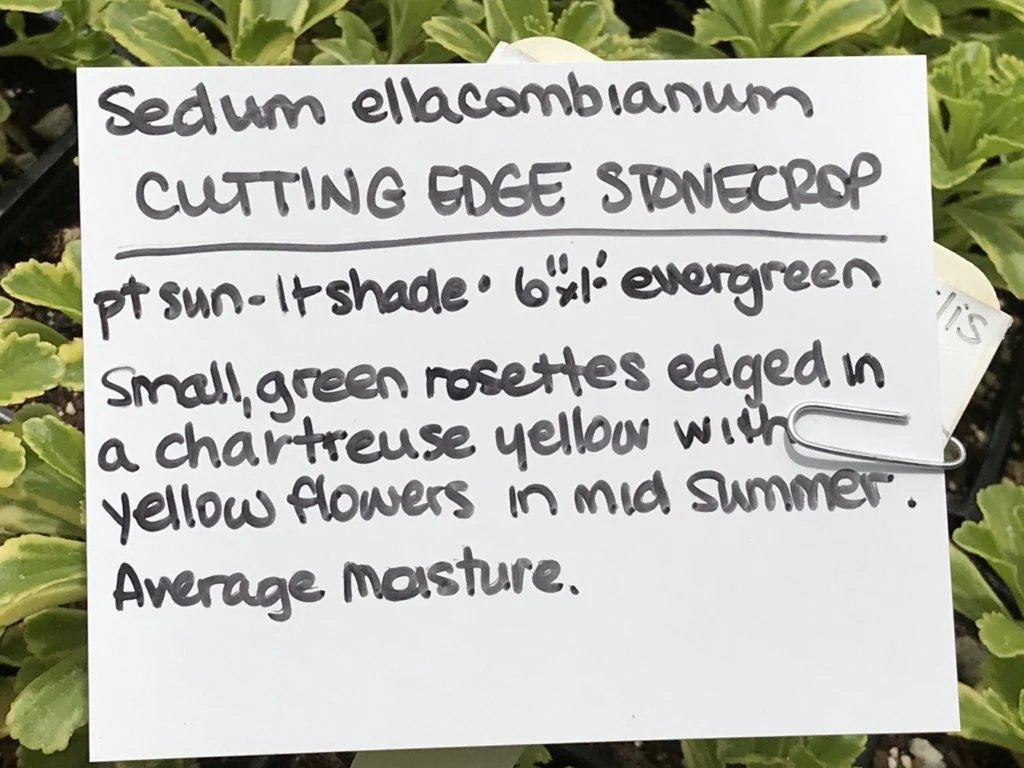 Sedum ellacombianum
CUTTING EDGE STONECROP
pt sun - lt shade • 6"x1' evergreen
Small, green rosettes edged in
a chartreuse yellow with
yellow flowers in mid summer.
Average moisture.